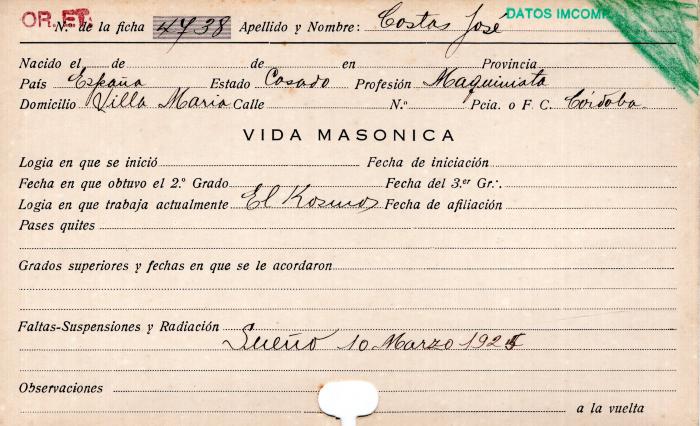 OR. ET. DATOS IMCOMP
N.º de la ficha 4738 Apellido y Nombre: Costas José
Nacido el de de en Provincia
País España Estado Casado Profesión Maquinista
Domicilio Villa Maria Calle N.º Pcia. o F. C. Córdoba
VIDA MASONICA
Logia en que se inició Fecha de iniciación
Fecha en que obtuvo el 2.º Grado Fecha del 3.er Gr∴
Logia en que trabaja actualmente El Kosmos Fecha de afiliación
Pases quites
Grados superiores y fechas en que se le acordaron
Faltas-Suspensiones y Radiación
Sueño 10 Marzo
Observaciones
a la vuelta